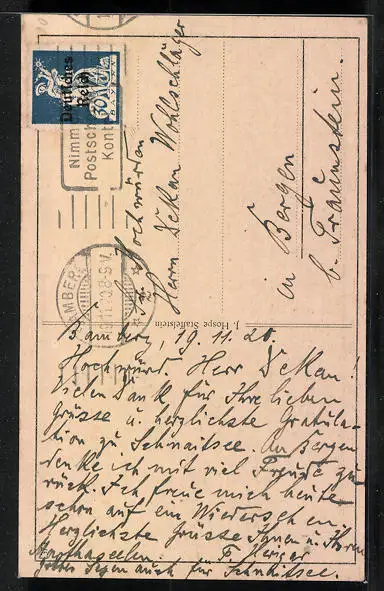 Deutsches
Reich
30
BAYERN
Nimm
Postsch
Kont
BAMBER
19.11.20.8-9V.
Hochwürden
Herrn Dekan Wohlschläger
in Bergen
b. Traunstein.
J. Hospe Staffelstein
Bamberg, 19.11.20.
Hochwürd. Herr Dekan!
Vielen Dank für Ihre lieben
Grüsse u. herzlichste Gratula-
tion zu Schnaitsee. An Bergen
denke ich mit viel Freude zu-
rück. Ich freue mich heute
schon auf ein Wiedersehen.
Herzlichste Grüsse Ihnen u. Ihren
F.
Gottes Segen auch für Schnaitsee.